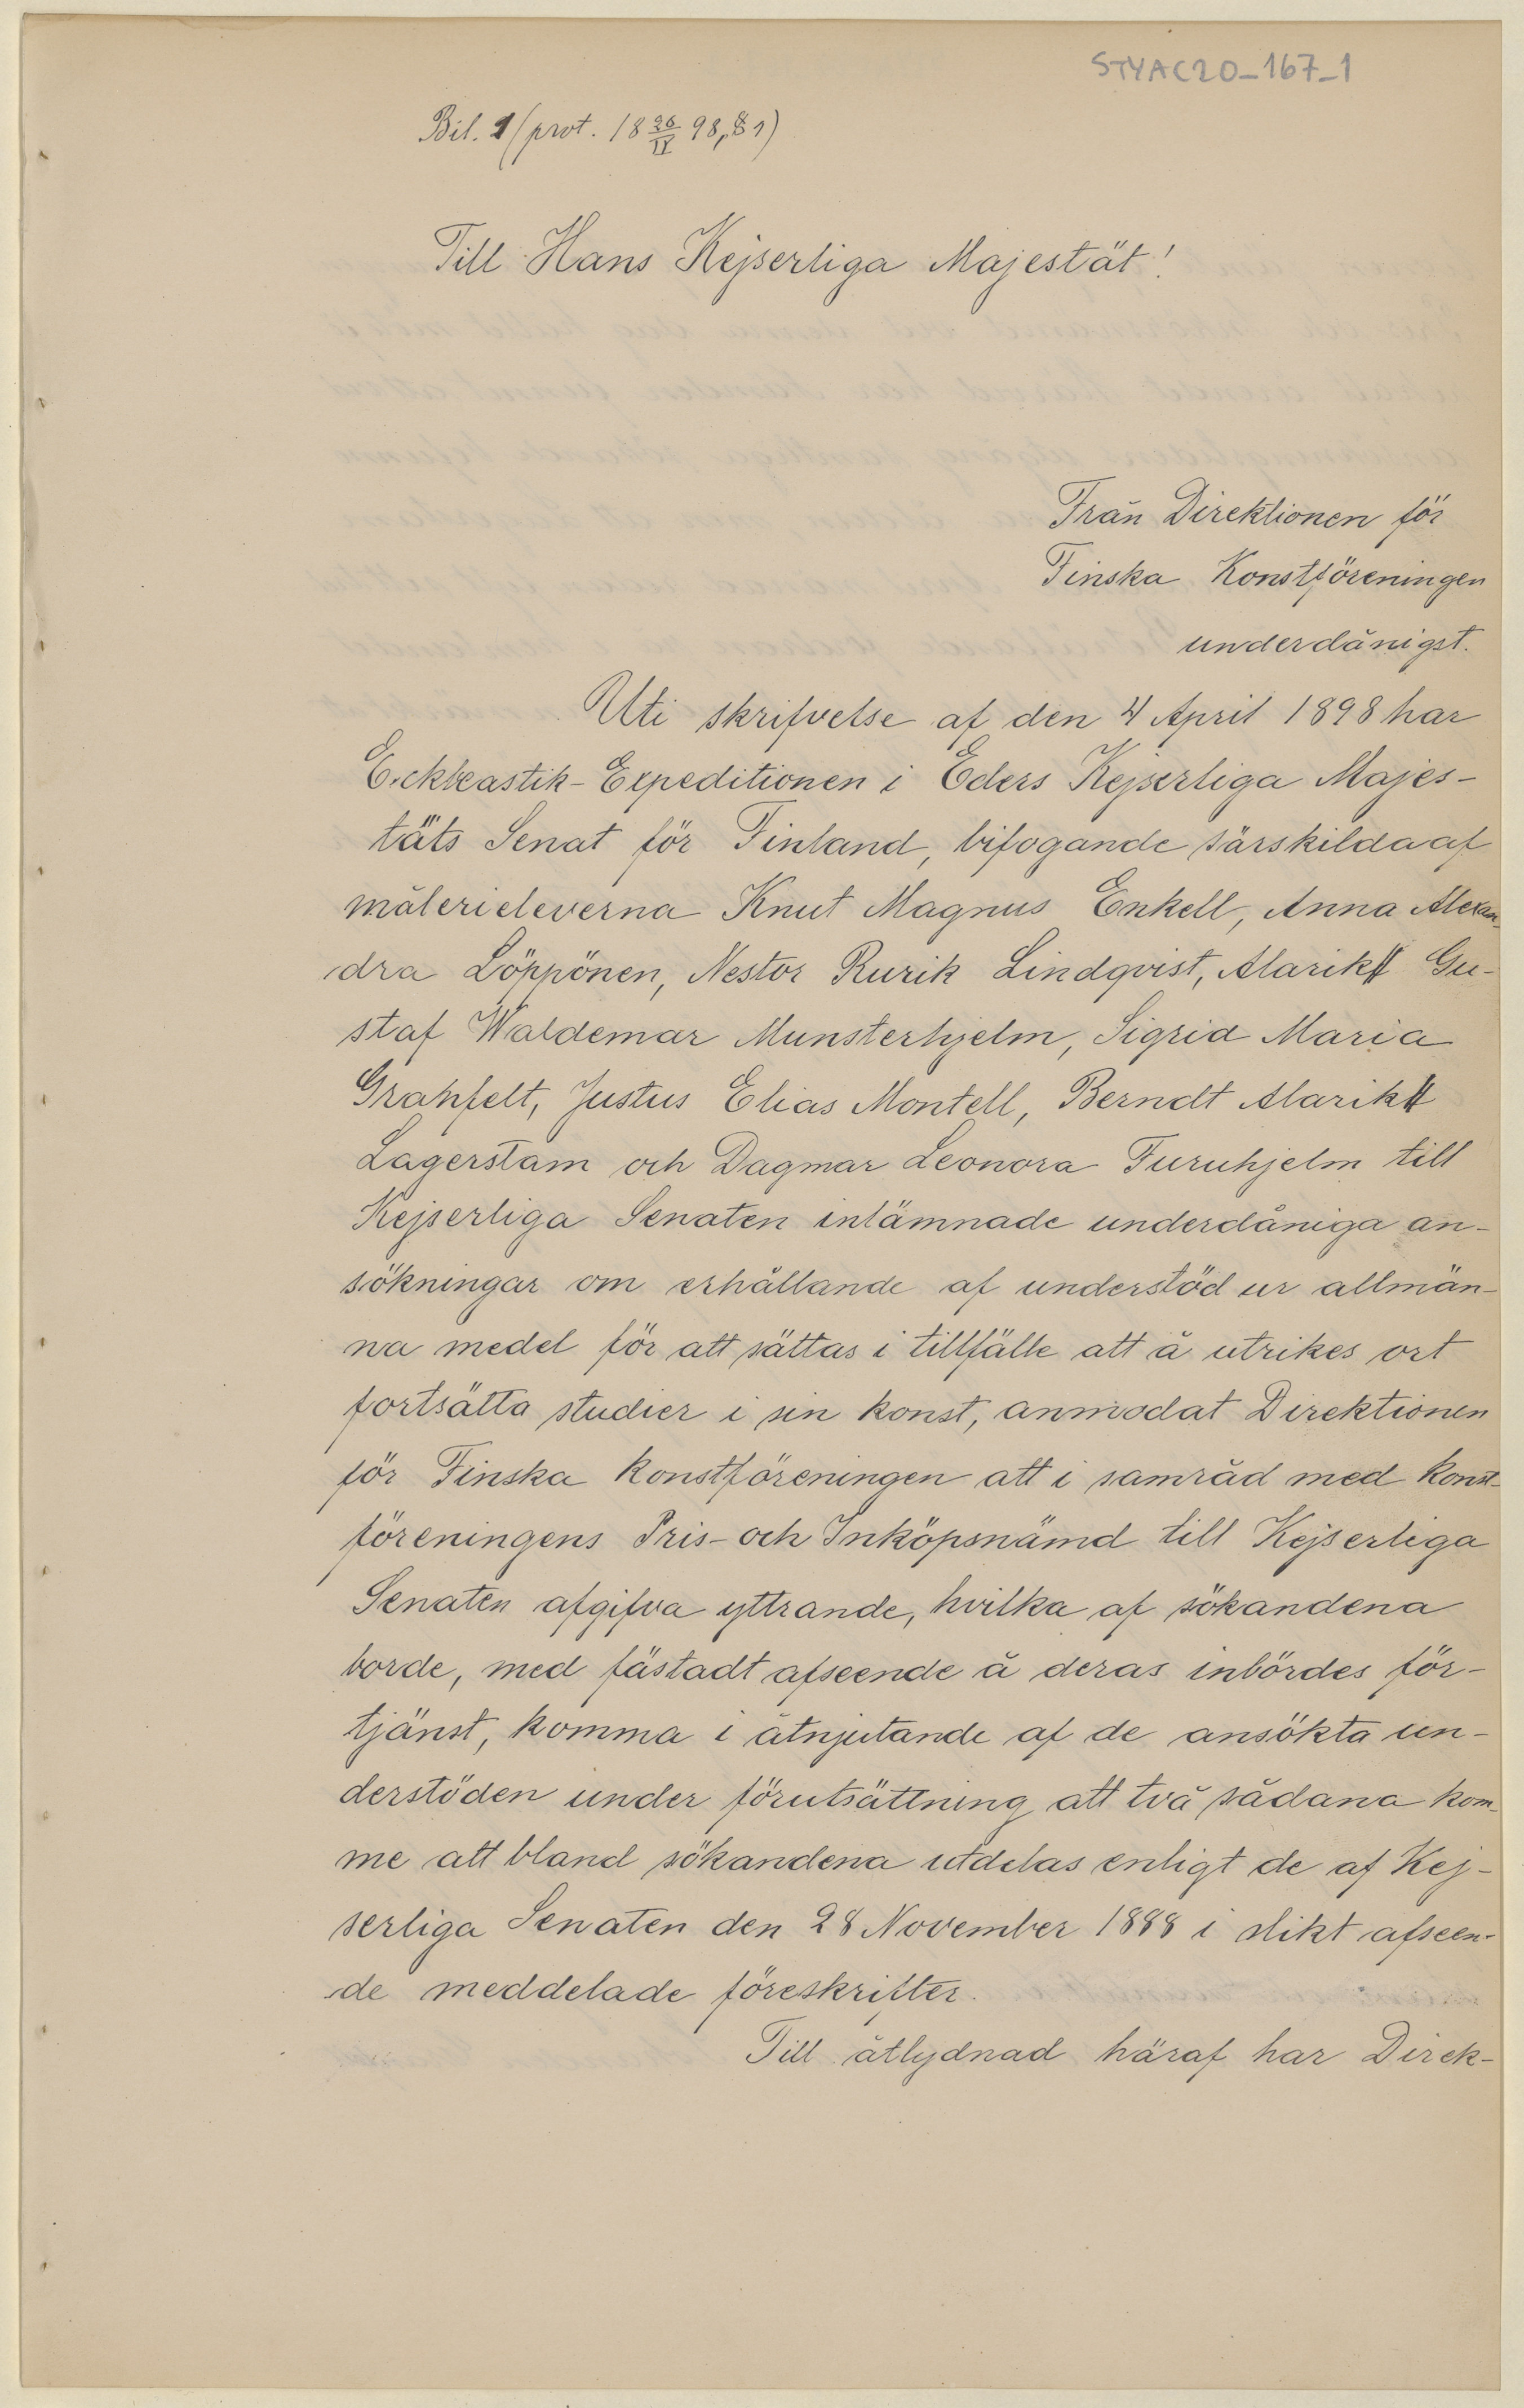 STYAC20_167_1
Bil. 1 (prot. 18 26/IV 98, § 1)
Till Hans Kejserliga Majestät!
Från Direktionen för
Finska Konstföreningen
underdånigst.
Uti skrifvelse af den 4 April 1898 har
Eckleastik-Expeditionen i Eders Kejserliga Majes-
täts Senat för Finland, bifogande särskilda af
målerieleverna Knut Magnus Enkell, Anna Alexan-
dra Löppönen, Nestor Rurik Lindqvist, Alarik Gu-
staf Waldemar Munsterhjelm, Sigrid Maria
Granfelt, Justus Elias Montell, Berndt Alarik
Lagerstam och Dagmar Leonora Furuhjelm till
Kejserliga Senaten inlämnade underdåniga an-
sökningar om erhållande af understöd ur allmän-
na medel för att sättas i tillfälle att å utrikes ort
fortsätta studier i sin konst, anmodat Direktionen
för Finska Konstföreningen att i samråd med Konst-
föreningens Pris- och Inköpsnämd till Kejserliga
Senaten afgifva yttrande, hvilka af sökandena
borde, med fästadt afseende å deras inbördes för-
tjänst, komma i åtnjutande af de ansökta un-
derstöden under förutsättning att två sådana kom-
me att bland sökandena utdelas enligt de af Kej-
serliga Senaten den 28 November 1888 i slikt afseen-
de meddelade föreskrifter.
Till åtlydnad häraf har Direk-